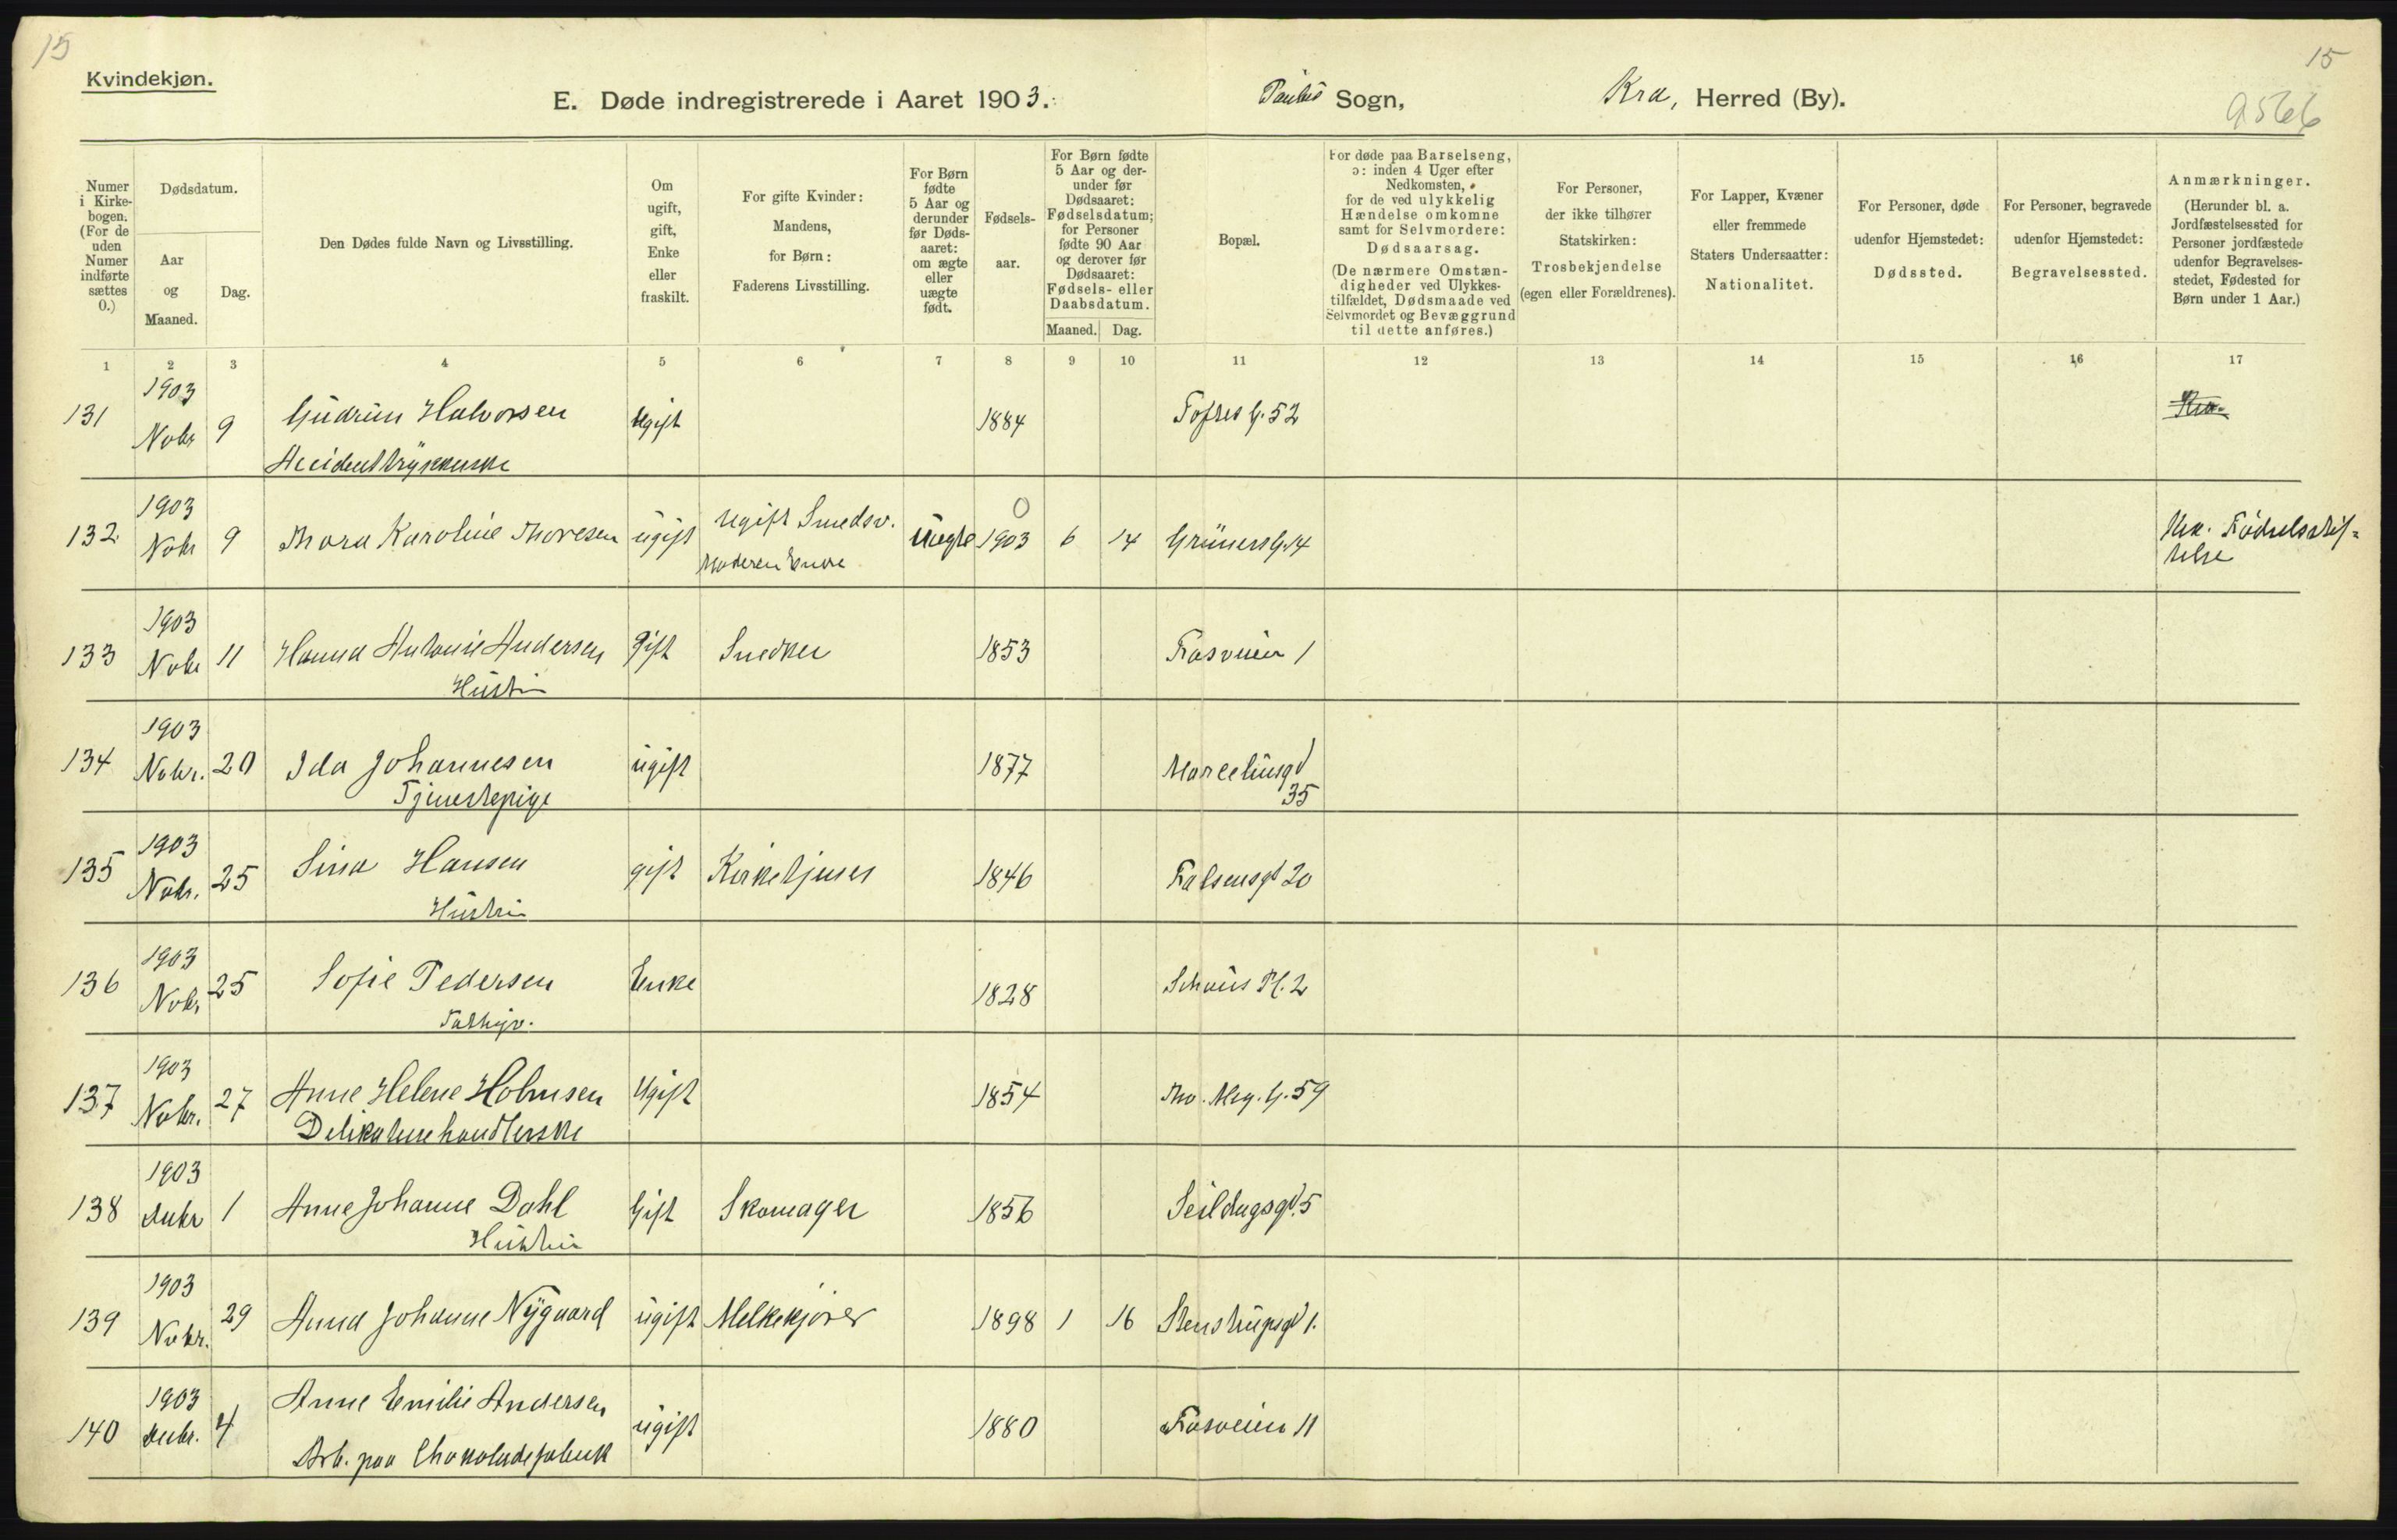 15
15
Kvindekjøn.
E. Døde indregistrerede i Aaret 1903. Paulus Sogn, Kra, Herred (By).
9566
Numer i Kirkebogen. (For de uden Numer indførte sættes 0.)
Dødsdatum.
Aar og Maaned.
Dag.
Den Dødes fulde Navn og Livsstilling.
Om ugift, gift, Enke eller fraskilt.
For gifte Kvinder: Mandens, for Børn: Faderens Livsstilling.
For Børn fødte 5 Aar og derunder før Dødsaaret: om ægte eller uægte født.
Fødselsaar.
For Børn fødte 5 Aar og derunder før Dødsaaret: Fødselsdatum; for Personer fødte 90 Aar og derover før Dødsaaret: Fødsels- eller Daabsdatum.
Maaned. Dag.
Bopæl.
For døde paa Barselseng, ɔ: inden 4 Uger efter Nedkomsten, for de ved ulykkelig Hændelse omkomne samt for Selvmordere: Dødsaarsag. (De nærmere Omstændigheder ved Ulykkestilfældet, Dødsmaade ved Selvmordet og Bevæggrund til dette anføres.)
For Personer, der ikke tilhører Statskirken: Trosbekjendelse (egen eller Forældrenes).
For Lapper, Kvæner eller fremmede Staters Undersaatter: Nationalitet.
For Personer, døde udenfor Hjemstedet: Dødssted.
For Personer, begravede udenfor Hjemstedet: Begravelsessted.
Anmærkninger. (Herunder bl. a. Jordfæstelsessted for Personer jordfæstede udenfor Begravelsesstedet, Fødested for Børn under 1 Aar.)
1 2 3 4 5 6 7 8 9 10 11 12 13 14 15 16 17
1903
131 Nobr 9 Gudrun Halvorsen Ugift 1884 Toftes G. 52 Kra.
Accidenttrykkerske
1903 Ugift Smedsv. 0
132 Nobr 9 Thora Karoline Thoresen ugift uægte 1903 6 14 Grünersg. 14 Kra. Fødselsstif-
Moderen Enke telse
1903
133 Nobr 11 Hanna Antonie Andersen Gift Snedker 1853 Fossveien 1
Hustru
1903
134 Nobr. 20 Ida Johannesen ugift 1877 Marceliusgd
Tjenestepige 35
1903
135 Nobr. 25 Sina Hansen gift Kirketjener 1846 Falsensgd 20
Hustru
1903
136 Nobr 25 Sofie Pedersen Enke 1828 Schous Pl. 2
Fathjv.
1903
137 Nobr. 27 Anne Helene Holmsen Ugift 1854 Tho. Meg. G. 59
Delikatessehandlerske
1903
138 Debr 1 Anne Johanne Dahl Gift Skomager 1856 Seildugsgd. 5
Hustru
1903
139 Nobr. 29 Anna Johanne Nygaard ugift Melkekjører 1898 1 16 Stenstrupsgd 1.
1903 Anne Emilie Andersen
140 Debr. 4 ugift 1880 Fossveien 11
Arb. paa Chokoladefabrik